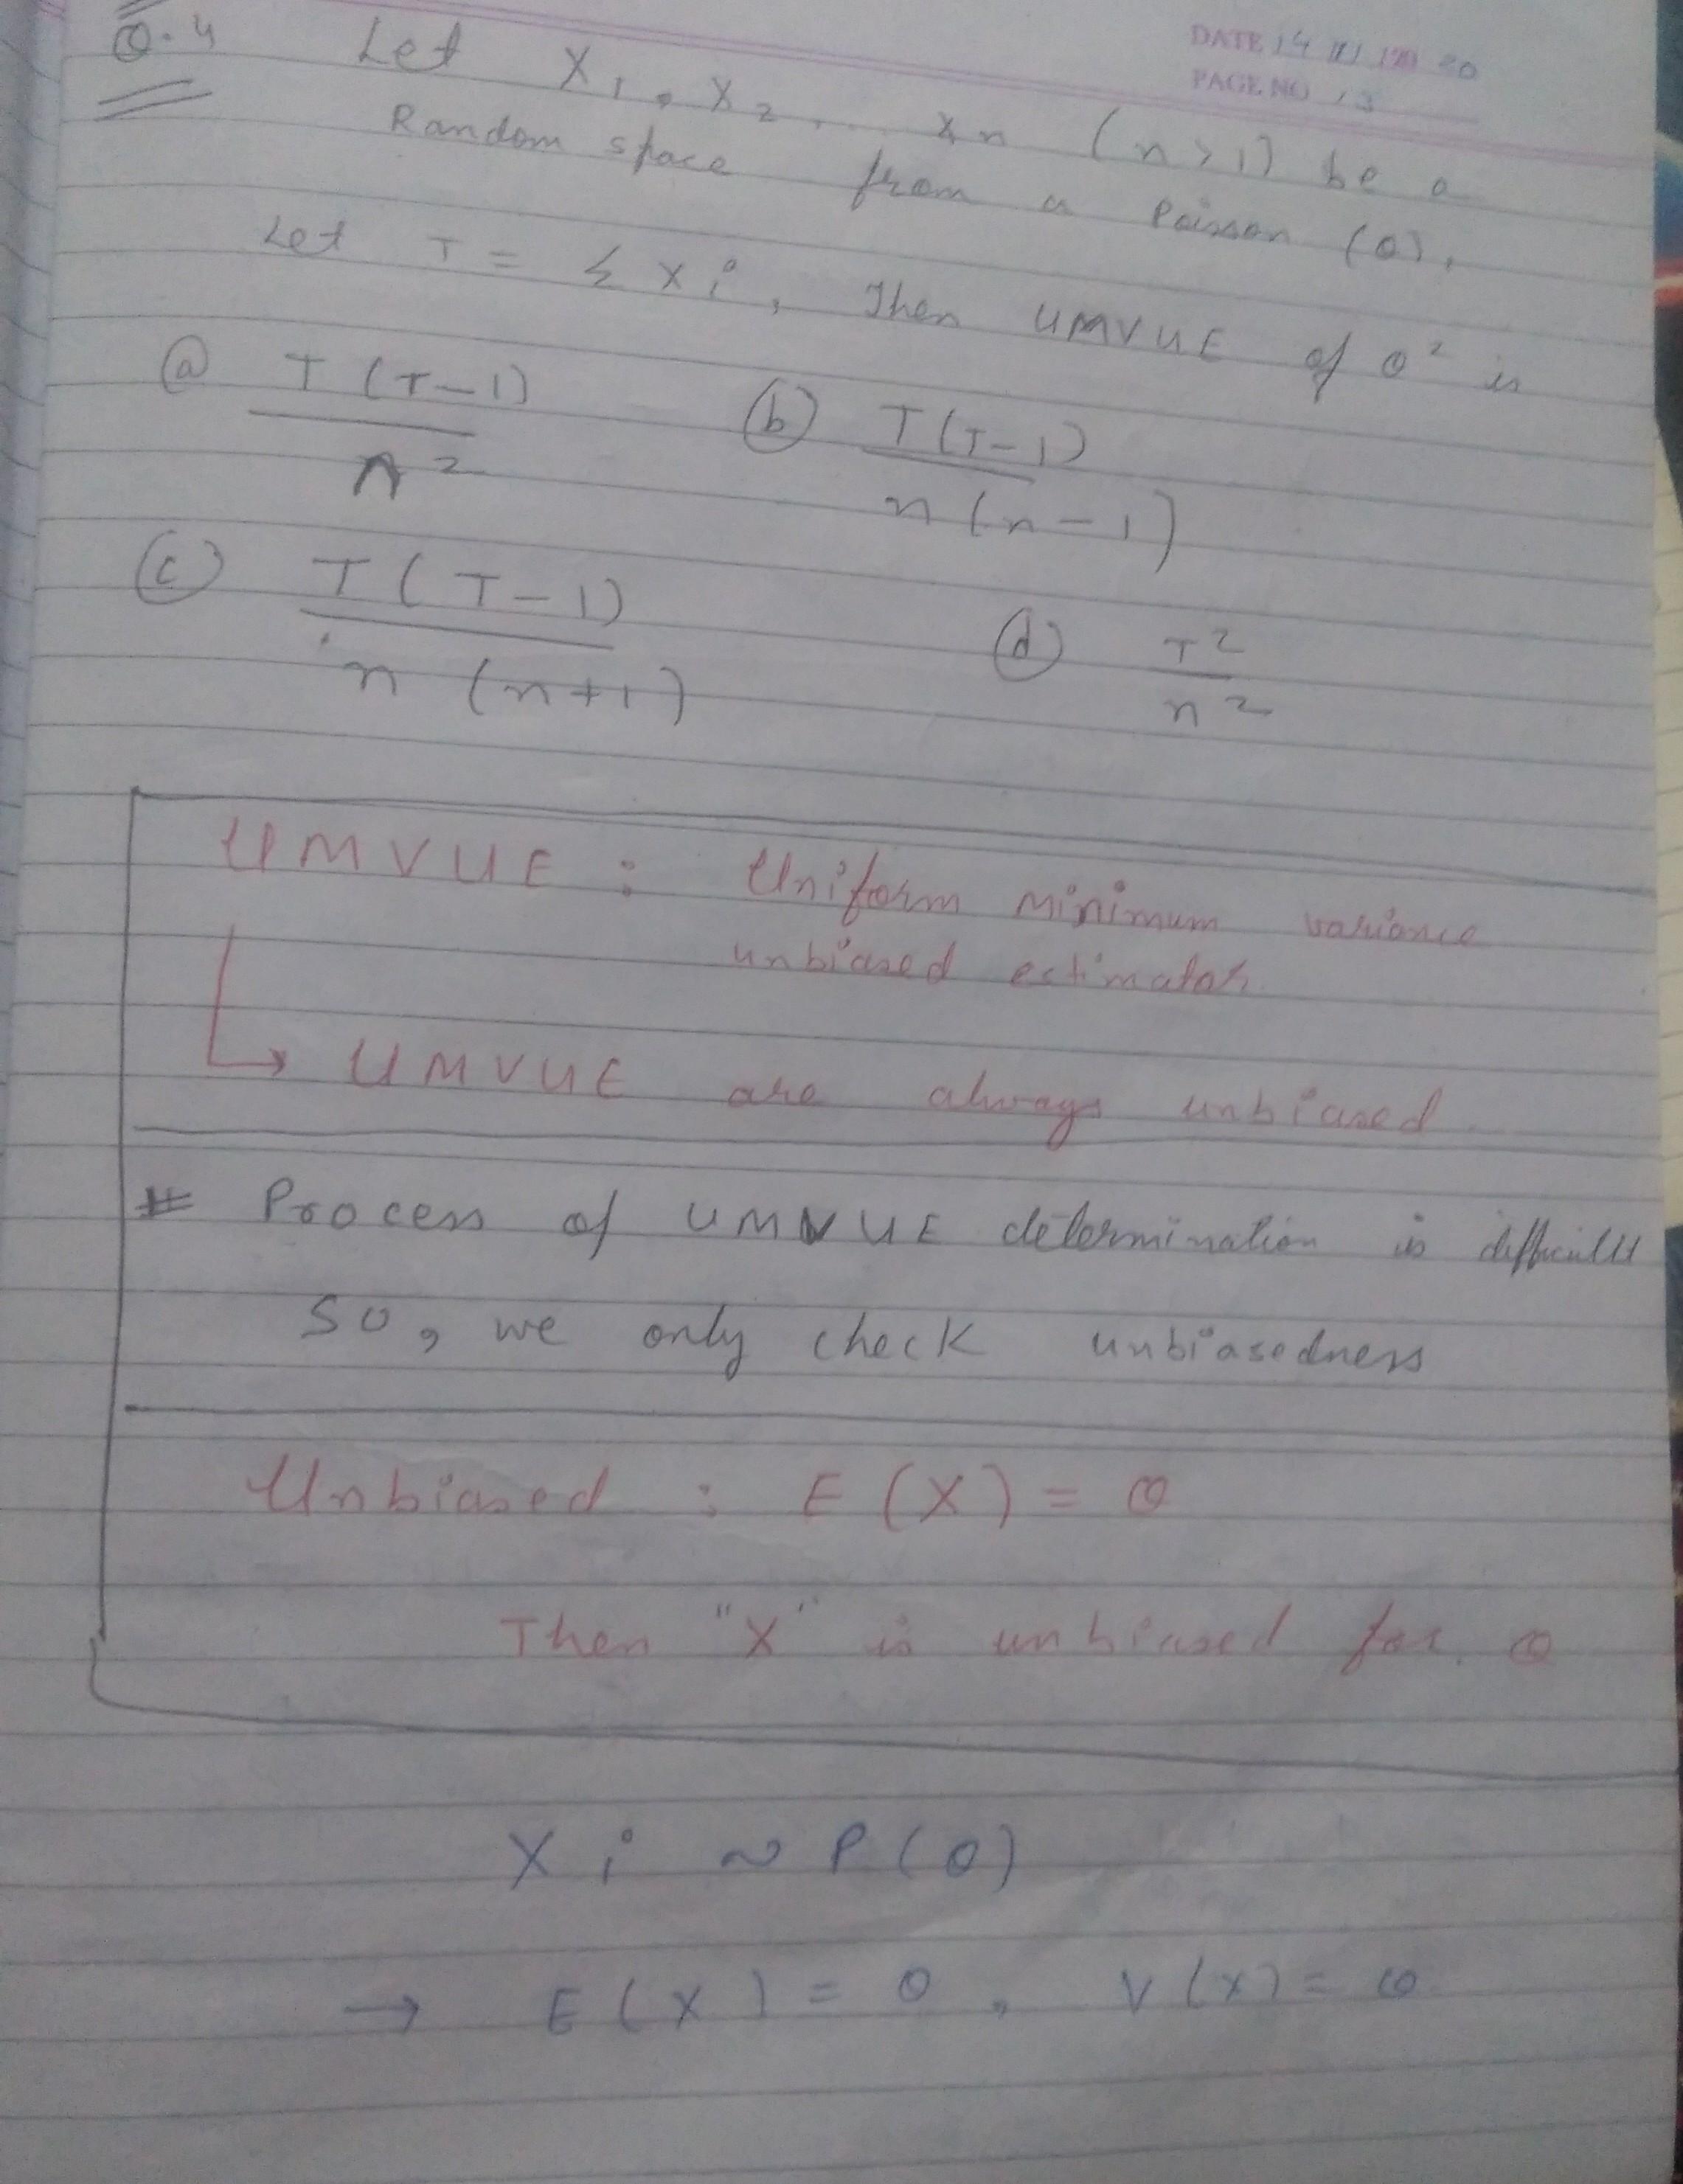 Q.4 Let X1, X2, ... Xn (n>1) be a
DATE 14
PAGE NO 13
Random space from a Poisson (θ),
Let T = Σ Xi, Then UMVUE of θ² is
(a) T(T-1) / n²
(b) T(T-1) / n(n-1)
(c) T(T-1) / n (n+1)
(d) T² / n²
UMVUE : Uniform minimum variance
unbiased estimator
↳ UMVUE are always unbiased
# Process of UMVUE determination is difficult
So, we only check unbiasedness
Unbiased : E(X) = θ
Then "X" is unbiased for θ
Xi ~ P(θ)
→ E(X) = θ, V(X) = θ